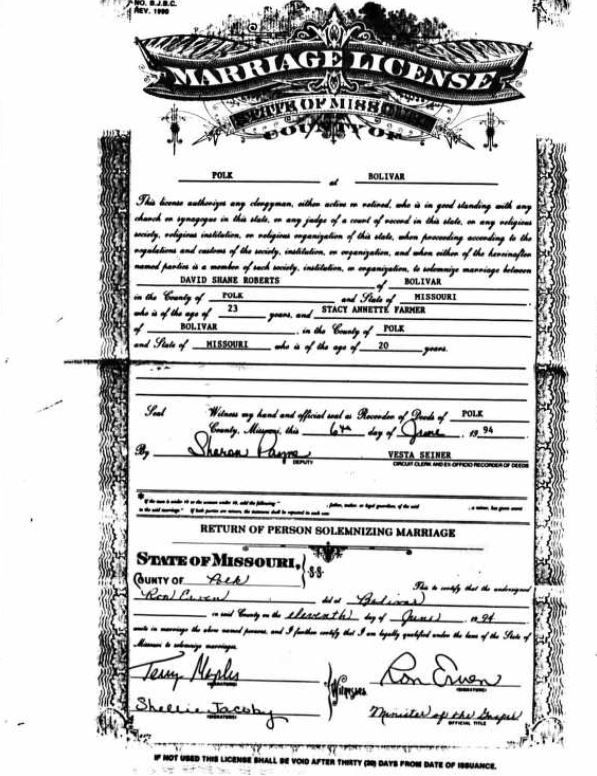 NO. B.J.B.C.
REV. 1990
MARRIAGE LICENSE
STATE OF MISSOURI
COUNTY OF
POLK at BOLIVAR
This license authorizes any clergyman, either active or retired, who is in good standing with any
church or synagogue in this state, or any judge of a court of record in this state, or any religious
society, religious institution, or religious organization of this state, when proceeding according to the
regulations and customs of the society, institution, or organization, and when either of the hereinafter
named parties is a member of such society, institution, or organization, to solemnize marriage between
DAVID SHANE ROBERTS of BOLIVAR
in the County of POLK and State of MISSOURI
who is of the age of 23 years, and STACY ANNETTE FARMER
of BOLIVAR, in the County of POLK
and State of MISSOURI who is of the age of 20 years.
Seal Witness my hand and official seal as Recorder of Deeds of POLK
County, Missouri, this 6th day of June, 19 94
By Sharon Payne VESTA SEINER
DEPUTY CIRCUIT CLERK AND EX-OFFICIO RECORDER OF DEEDS
* If the man is under 18 or the woman under 18, add the following " , father, mother, or legal guardian, of the said , a minor, has given assent
to the said marriage."
RETURN OF PERSON SOLEMNIZING MARRIAGE
STATE OF MISSOURI, } SS
COUNTY OF Polk
This is to certify that the undersigned
Ron Erwen did at Bolivar
in said County on the eleventh day of June 19 94
unite in marriage the above named persons, and I further certify that I am legally qualified under the laws of the State of
Missouri to solemnize marriages.
Terry Maples Ron Erwen
(SIGNATURE) Witnesses (SIGNATURE)
Shellie Jacoby Minister of the Gospel
(SIGNATURE) OFFICIAL TITLE
IF NOT USED THIS LICENSE SHALL BE VOID AFTER THIRTY (30) DAYS FROM DATE OF ISSUANCE.